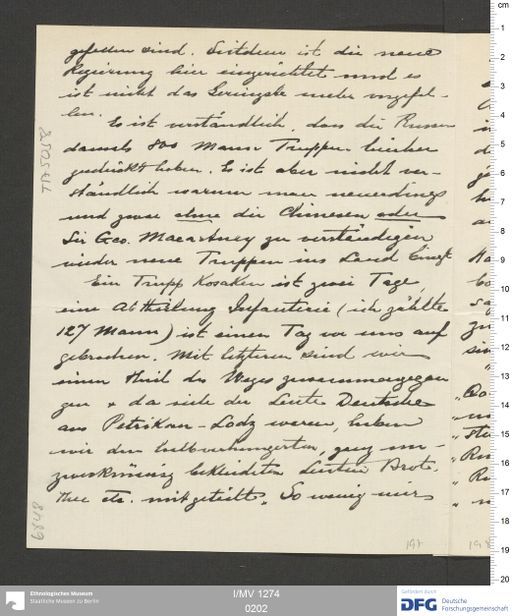 gefallen sind. Seitdem ist die neue
Regierung hier eingerichtet und es
ist nicht das Geringste mehr vorgefal-
len.
Es ist verständlich, dass die Russen
damals 800 Mann Truppen hierher
geschickt haben. Es ist aber nicht ver-
ständlich warum man neuerdings
und zwar ohne die Chinesen oder
Sir Geo. Macartney zu verständigen
wieder neue Truppen ins Land bringt
Ein Trupp Kosaken ist zwei Tage,
eine Abtheilung Infanterie (ich zählte
127 Mann) ist einen Tag vor uns auf
gebrochen. Mit letzteren sind wir
einen Theil des Weges zusammengegan
gen & da viele der Leute Deutsche
aus Petrikau - Lodz waren, haben
wir den halbverhungerten, ganz un-
zweckmässig bekleideten Leuten Brot,
Thee etc. mitgeteilt. So wenig wir
197
198
cm
1
2
3
4
5
6
7
8
9
10
11
12
13
14
15
16
17
18
19
20
Ethnologisches Museum
Staatliche Museen zu Berlin
I/MV 1274
0202
Gefördert durch
DFG
Deutsche
Forschungsgemeinschaft